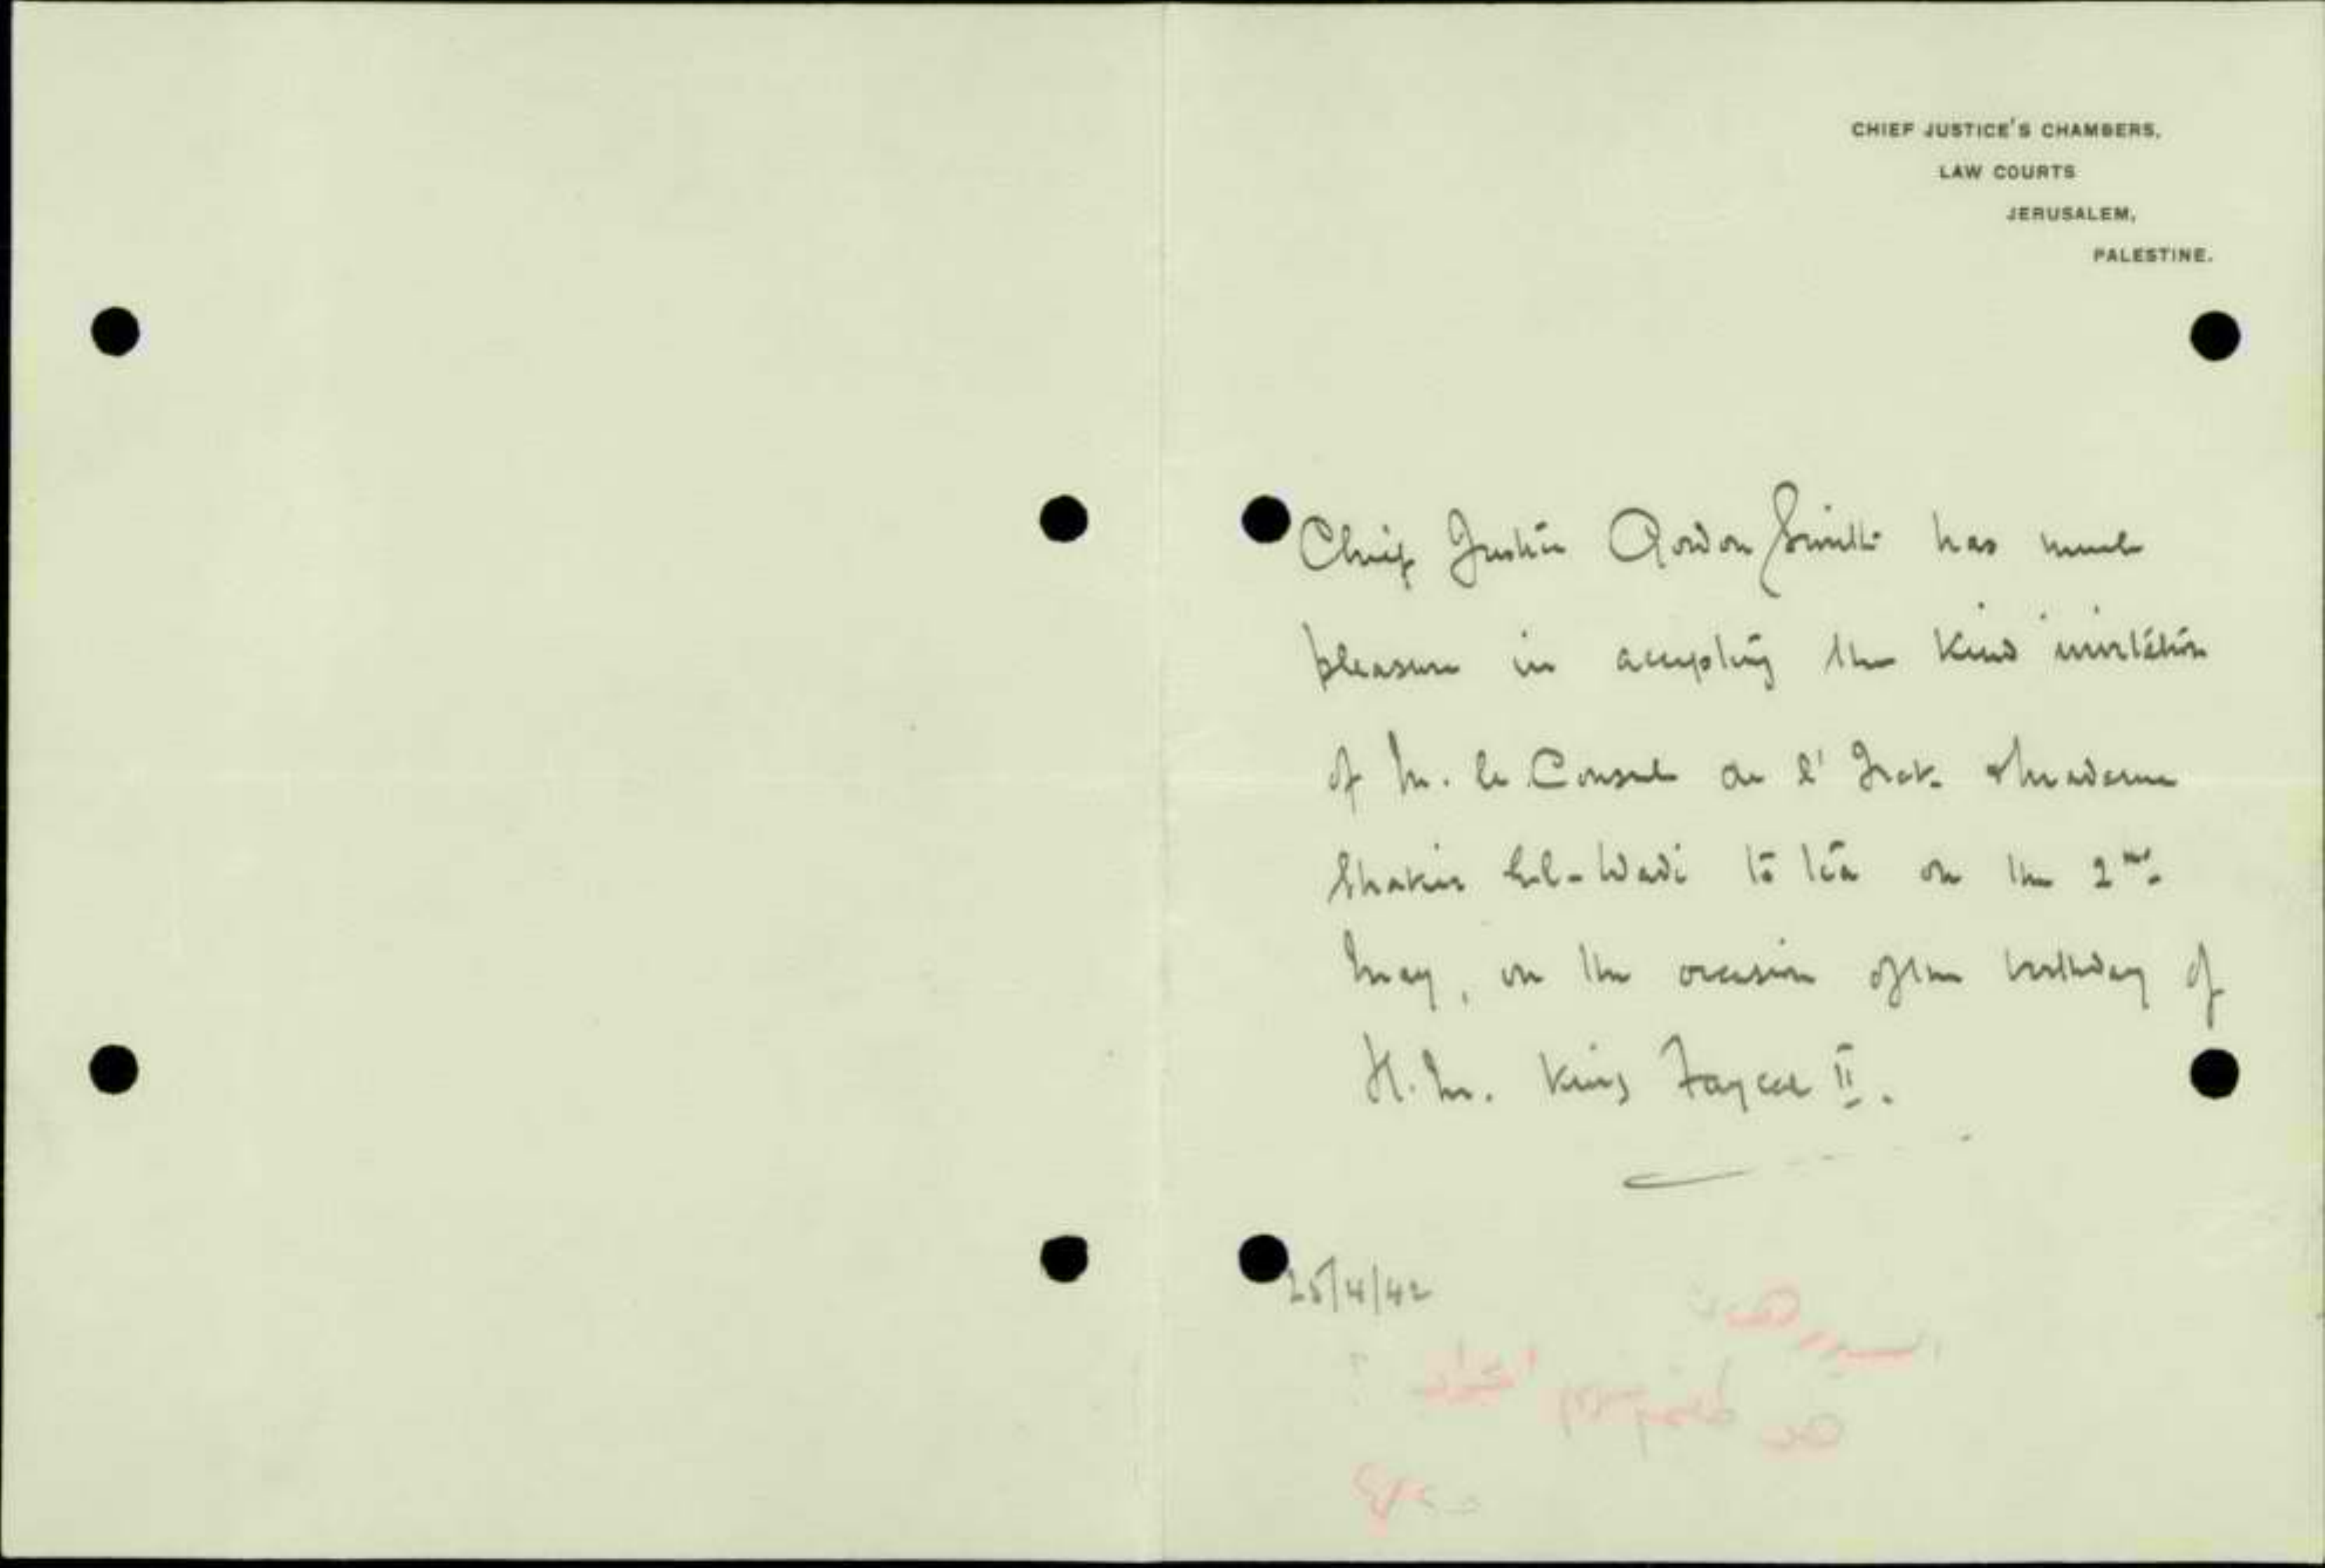 CHIEF JUSTICE'S CHAMBERS,
LAW COURTS
JERUSALEM,
PALESTINE.
Chief Justice Gordon Smith has much
pleasure in accepting the kind invitation
of M. le Consul de l'Irak & Madame
Shakir El-Wadi to tea on the 2nd
May, on the occasion of the birthday of
H.M. King Fayçal II.
25/4/42